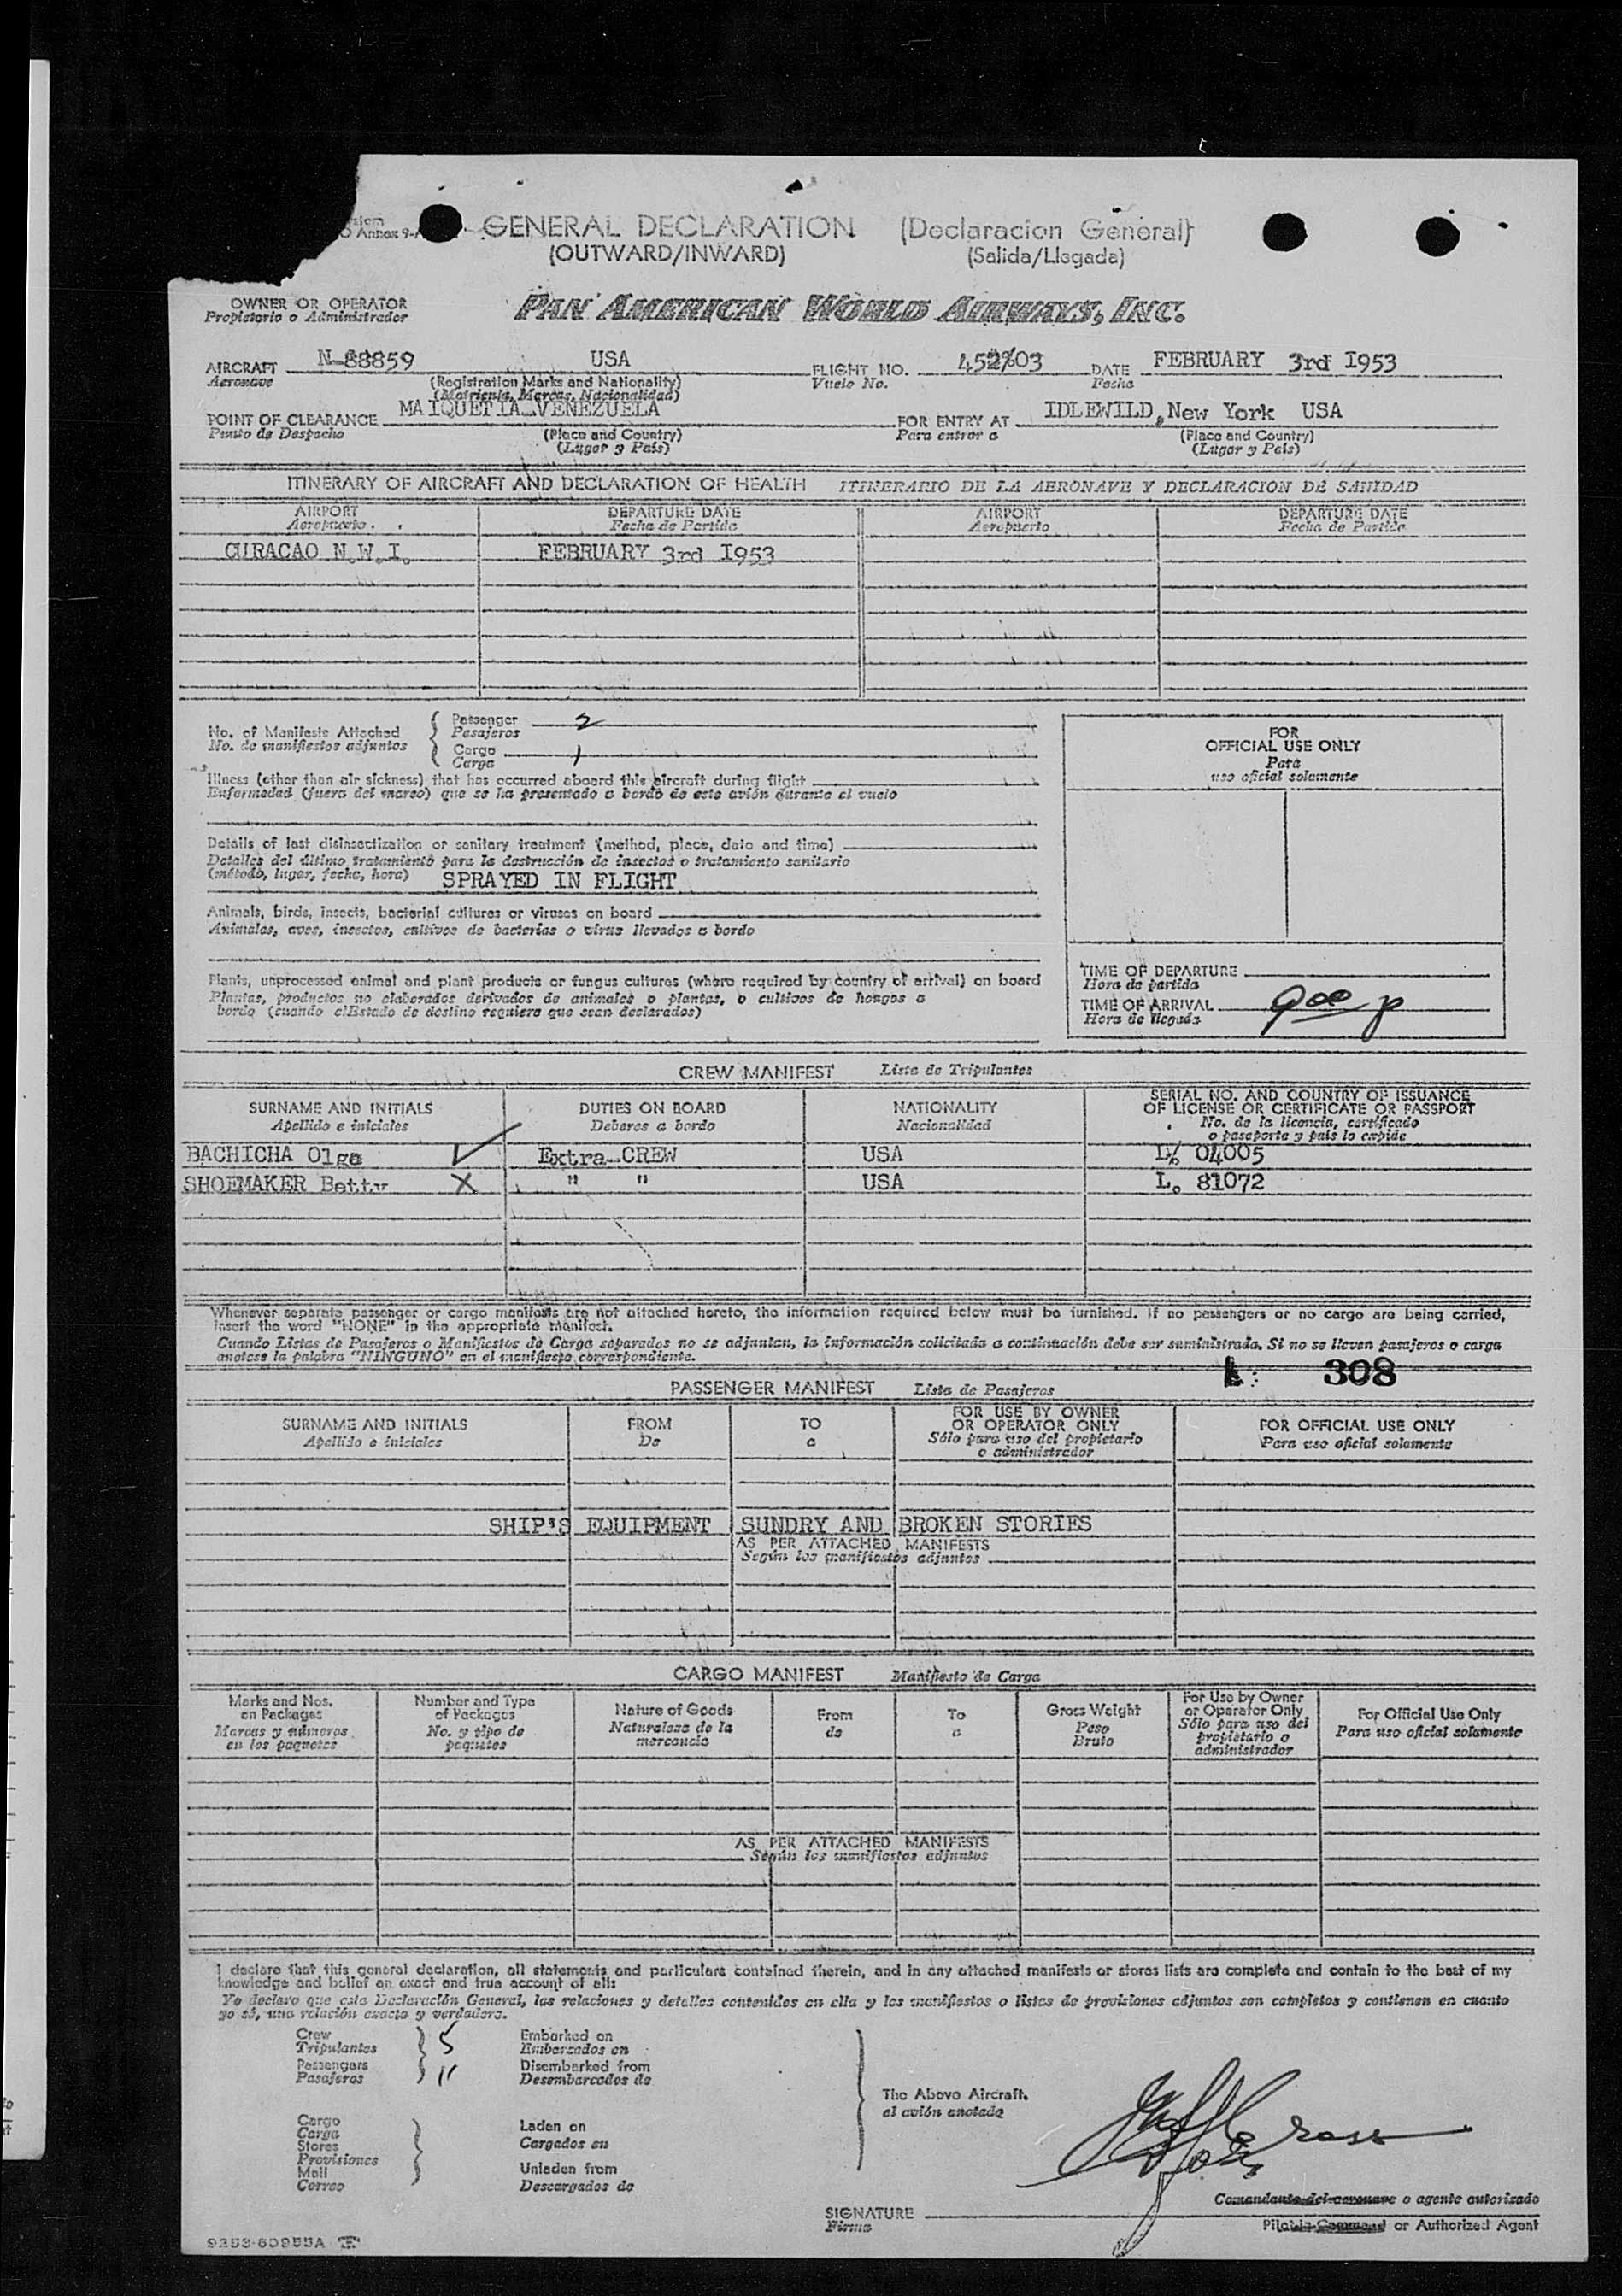 GENERAL DECLARATION (Declaracion General)
(OUTWARD/INWARD) (Salida/Llegada)
OWNER OR OPERATOR
Propietario o Administrador
PAN AMERICAN WORLD AIRWAYS, INC.
AIRCRAFT N-88859 USA FLIGHT NO. DATE FEBRUARY 3rd 1953
Aeronave (Registration Marks and Nationality) Vuelo No. Fecha
(Matricula, Marcas, Nacionalidad)
POINT OF CLEARANCE MAIQUETIA VENEZUELA FOR ENTRY AT IDLEWILD, New York USA
Punto de Despacho (Place and Country) Para entrar a (Place and Country)
(Lugar y País) (Lugar y País)
ITINERARY OF AIRCRAFT AND DECLARATION OF HEALTH ITINERARIO DE LA AERONAVE Y DECLARACION DE SANIDAD
AIRPORT DEPARTURE DATE AIRPORT DEPARTURE DATE
Aeropuerto Fecha de Partida Aeropuerto Fecha de Partida
CURACAO N.W.I. FEBRUARY 3rd 1953
No. of Manifests Attached Passenger 2
No. de manifiestos adjuntos Pasajeros
Cargo 1
Carga
FOR
OFFICIAL USE ONLY
Para
uso oficial solamente
Illness (other than air sickness) that has occurred aboard this aircraft during flight
Enfermedad (fuera del mareo) que se ha presentado a bordo de este avión durante el vuelo
Details of last disinsectization or sanitary treatment (method, place, date and time)
Detalles del último tratamiento para la destrucción de insectos o tratamiento sanitario
(método, lugar, fecha, hora) SPRAYED IN FLIGHT
Animals, birds, insects, bacterial cultures or viruses on board
Animales, aves, insectos, cultivos de bacterias o virus llevados a bordo
Plants, unprocessed animal and plant products or fungus cultures (where required by country of arrival) on board
Plantas, productos no elaborados derivados de animales o plantas, o cultivos de hongos a
bordo (cuando el Estado de destino requiera que sean declarados)
TIME OF DEPARTURE
Hora de partida
TIME OF ARRIVAL 900 p
Hora de llegada
CREW MANIFEST Lista de Tripulantes
SURNAME AND INITIALS DUTIES ON BOARD NATIONALITY SERIAL NO. AND COUNTRY OF ISSUANCE
OF LICENSE OR CERTIFICATE OR PASSPORT
Apellido e iniciales Deberes a bordo Nacionalidad No. de la licencia, certificado
o pasaporte y país lo expide
BACHICHA Olga Extra-CREW USA L. 04005
SHOEMAKER Betty X " " USA L. 81072
Whenever separate passenger or cargo manifests are not attached hereto, the information required below must be furnished. If no passengers or no cargo are being carried,
insert the word "NONE" in the appropriate manifest.
Cuando Listas de Pasajeros o Manifiestos de Carga separados no se adjuntan, la información solicitada a continuación debe ser suministrada. Si no se llevan pasajeros o carga
anotese la palabra "NINGUNO" en el manifiesto correspondiente.
308
PASSENGER MANIFEST Lista de Pasajeros
SURNAME AND INITIALS FROM TO FOR USE BY OWNER
OR OPERATOR ONLY FOR OFFICIAL USE ONLY
Apellido e iniciales De a Sólo para uso del propietario
o administrador Para uso oficial solamente
SHIP'S EQUIPMENT SUNDRY AND BROKEN STORIES
AS PER ATTACHED MANIFESTS
Según los manifiestos adjuntos
CARGO MANIFEST Manifiesto de Carga
Marks and Nos.
on Packages
Marcas y números
en los paquetes
Number and Type
of Packages
No. y tipo de
paquetes
Nature of Goods
Naturaleza de la
mercancia
From
de
To
a
Gross Weight
Peso
Bruto
For Use by Owner
or Operator Only
Sólo para uso del
propietario o
administrador
For Official Use Only
Para uso oficial solamente
AS PER ATTACHED MANIFESTS
Según los manifiestos adjuntos
I declare that this general declaration, all statements and particulars contained therein, and in any attached manifests or stores lists are complete and contain to the best of my
knowledge and belief an exact and true account of all:
Yo declaro que esta Declaración General, las relaciones y detalles contenidos en ella y los manifiestos o listas de provisiones adjuntos son completos y contienen en cuanto
yo sé, una relación exacta y verdadera.
Crew 5 Embarked on
Tripulantes Embarcados en
Passengers 11 Disembarked from
Pasajeros Desembarcados de
The Above Aircraft.
el avión anotado
Cargo Laden on
Carga Cargados en
Stores
Provisiones
Mail Unladen from
Correo Descargados de
SIGNATURE
Firma
Comandante del aeronave o agente autorizado
Pilot in Command or Authorized Agent